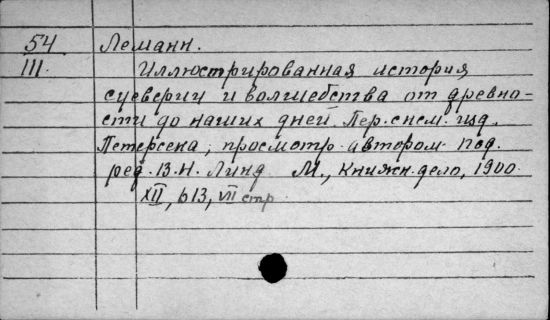 54 Леманн.
III. Иллюстрированная история
суеверий и волшебства от древно-
сти до наших дней. Пер. с нем. изд.
Петерсена, просмотр. автором. Под.
ред. В.Н. Линд. М., Книжн. дело, 1900.
XII, 613, VII стр.